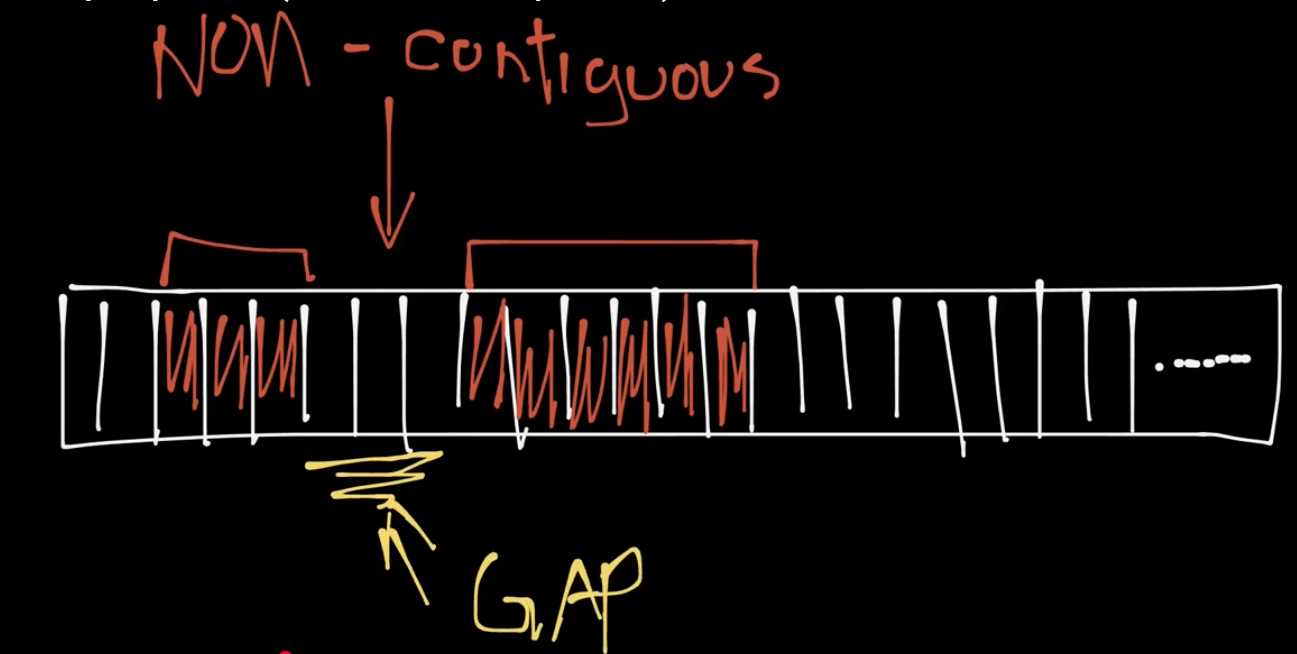 Non - contiguous
GAP